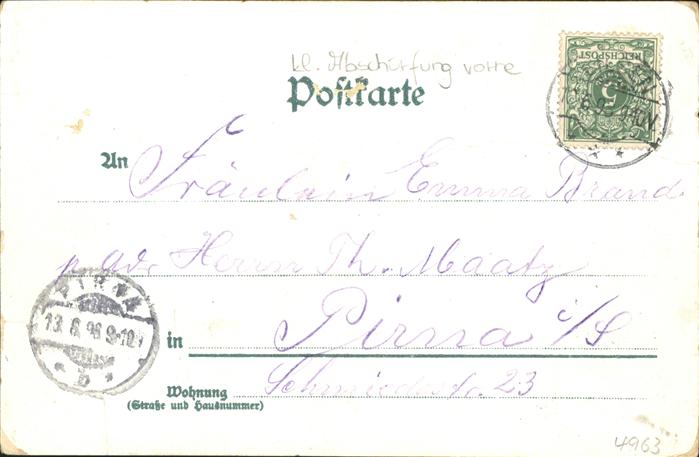 kl. Abschürfung vorne
Postkarte
REICHSPOST
5
An Fräulein Emma Brand
p. adr. Herrn Th. Maatz
in Pirna i/S
Wohnung Schmiedestr. 23
(Straße und Hausnummer)
PIRNA
13. 6. 96 9-10
* b *
4963